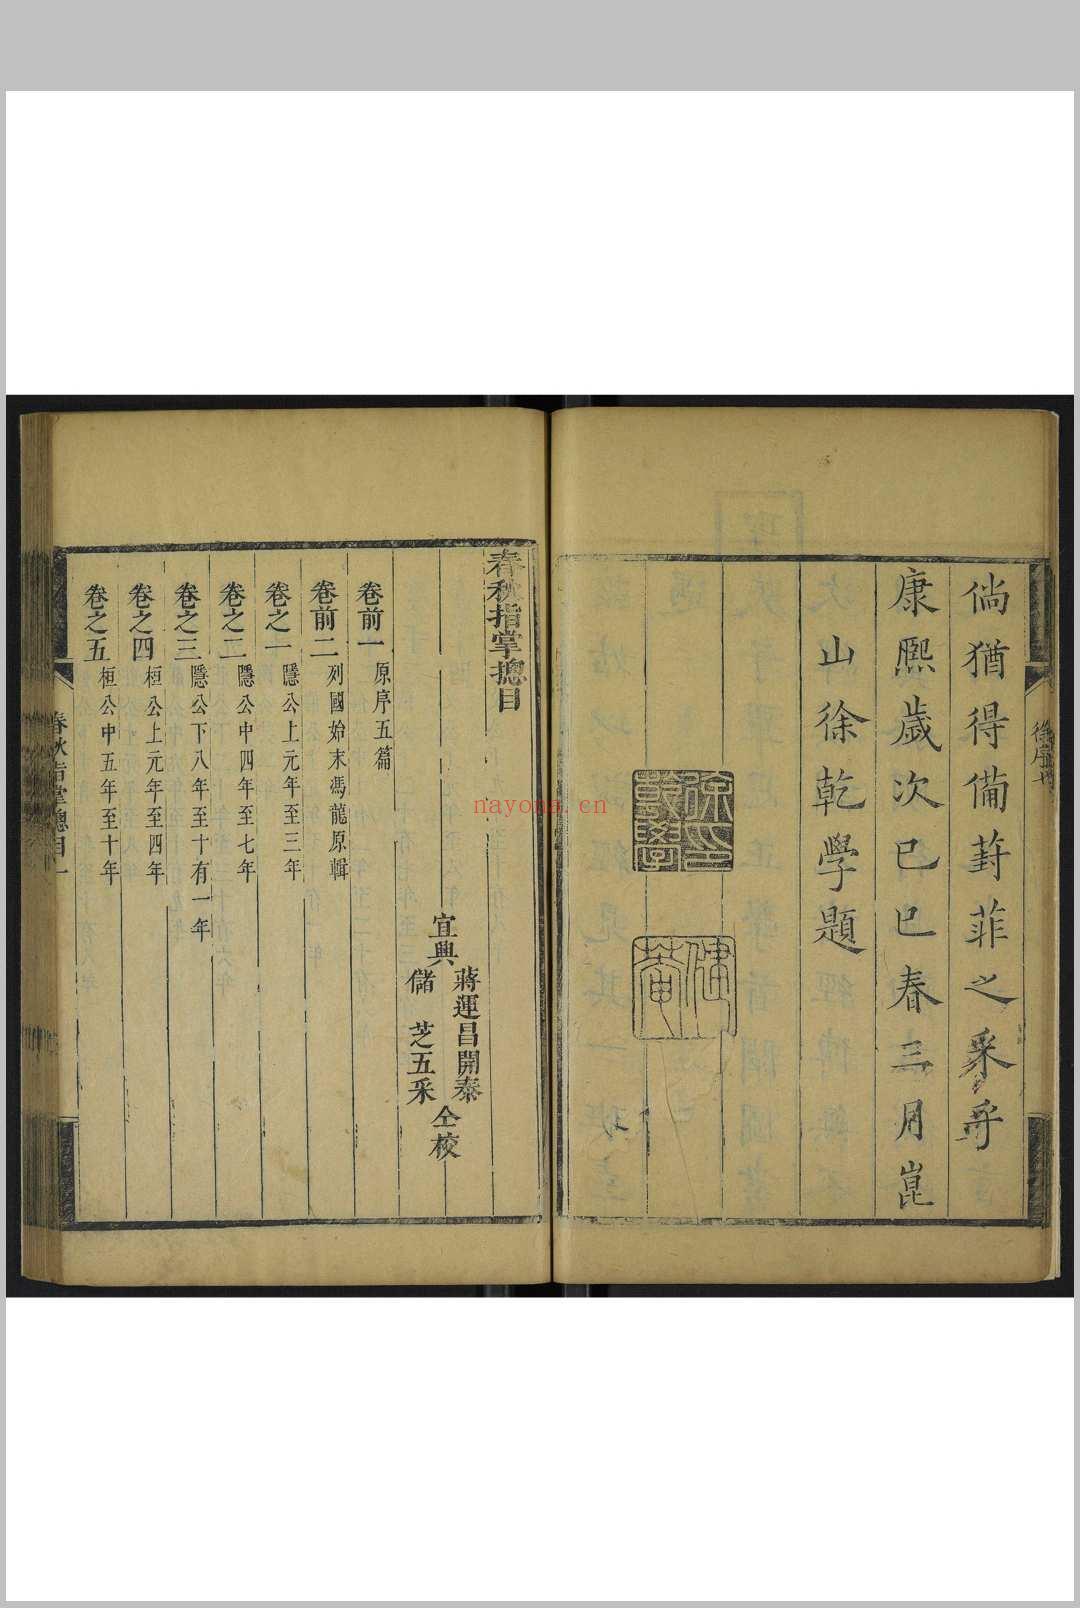 倘猶得備葑菲之采乎
康熈歲次已巳春三月崑
山徐乾學題
徐序
春秋指掌總目
宜興
蔣運昌開泰
儲芝五采
仝校
卷前一 原序五篇
卷前二 列國始末馮龍原輯
卷之一 隱公上元年至三年
卷之二 隱公中四年至七年
卷之三 隱公下八年至十有一年
卷之四 桓公上元年至四年
卷之五 桓公中五年至十年
春秋指掌總目 一
nayona.cn